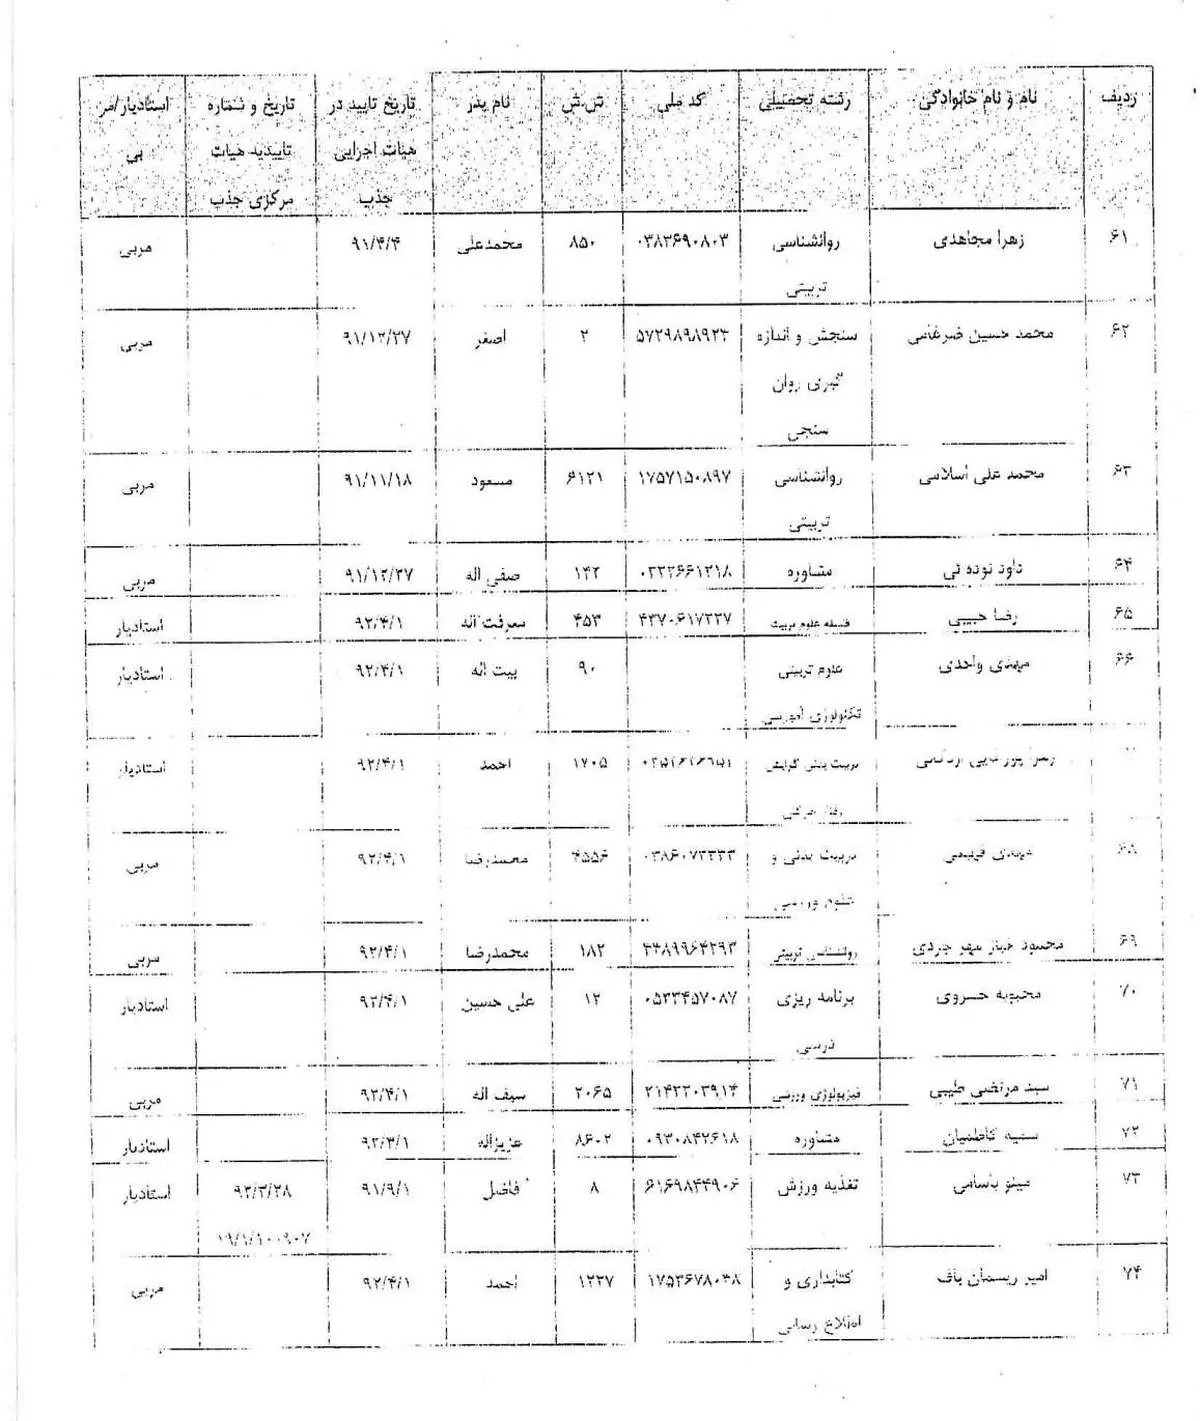 ردیف نام و نام خانوادگی رشته تحصیلی کد ملی ش.ش نام پدر تاریخ تایید در تاریخ و شماره استادیار/مر
هیات اجرایی تاییدیه هیات بی
جذب مرکزی جذب
۶۱ زهرا مجاهدی روانشناسی ۰۳۸۳۶۹۰۸۰۳ ۸۵۰ محمدعلی ۹۱/۴/۴ مربی
تربیتی
۶۲ محمد حسین ضرغامی سنجش و اندازه ۵۷۲۹۸۹۸۹۲۳ ۲ اصغر ۹۱/۱۲/۲۷ مربی
گیری روان
سنجی
۶۳ محمد علی اسلامی روانشناسی ۱۷۵۷۱۵۰۸۹۷ ۶۱۲۱ مسعود ۹۱/۱۱/۱۸ مربی
تربیتی
۶۴ داود نوده ئی مشاوره ۱۴۲ صفی اله ۹۱/۱۲/۲۷ مربی
۶۵ رضا حبیبی فلسفه علوم تربیت ۴۵۳ معرفت اله ۹۲/۴/۱ استادیار
۶۶ مهدی واحدی علوم تربیتی ۹۰ بیت اله ۹۲/۴/۱ استادیار
تکنولوژی آموزشی
تربیت بدنی گرایش ۱۷۰۵ احمد ۹۲/۴/۱ استادیار
رفتار حرکتی
۶۸ مهدی تربیت بدنی و ۴۵۵۶ محمدرضا ۹۲/۴/۱ مربی
علوم ورزشی
۶۹ محمود روانشناسی تربیتی ۱۸۲ محمدرضا ۹۲/۴/۱ مربی
۷۰ محبوبه خسروی برنامه ریزی ۱۲ علی حسین ۹۲/۴/۱ استادیار
درسی
۷۱ سید مرتضی طیبی فیزیولوژی ورزشی ۲۰۶۵ سیف اله ۹۲/۴/۱ مربی
۷۲ سمیه کاظمیان مشاوره ۰۹۳۰۸۴۲۶۱۸ ۸۶۰۲ عزیزاله استادیار
۷۳ مینو باسامی تغذیه ورزش ۶۱۶۹۸۴۴۹۰۶ ۸ فاضل ۹۱/۹/۱ ۹۲/۲/۲۸ استادیار
۷۴ امیر ریسمان باف کتابداری و ۱۲۲۷ احمد ۹۲/۴/۱ مربی
اطلاع رسانی